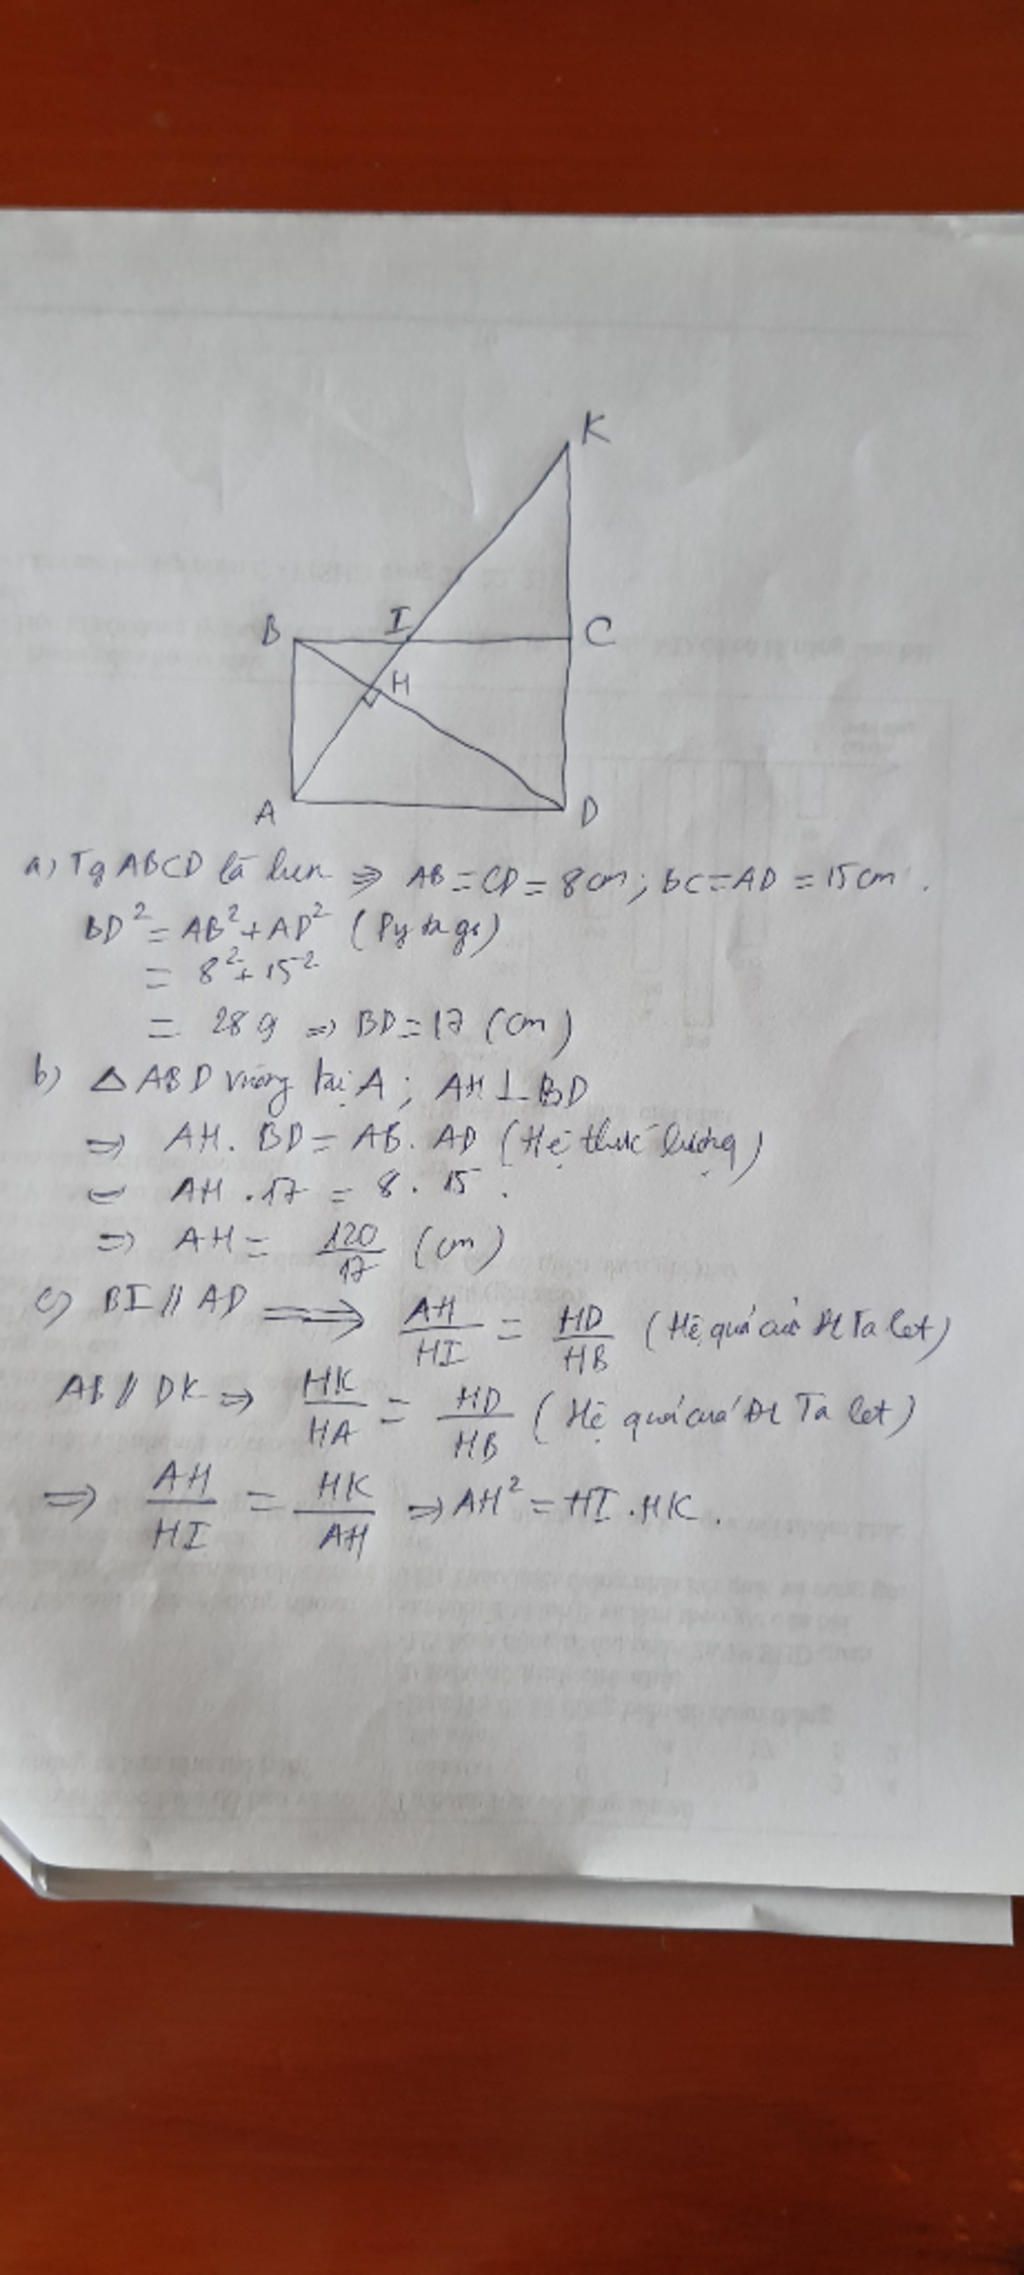 K
B I C
H
A D
a) Tg ABCD là hcn ⇒ AB = CD = 8cm; BC = AD = 15cm.
BD² = AB² + AD² (Pytago)
= 8² + 15²
= 289 ⇒ BD = 17 (cm)
b) △ABD vuông tại A; AH ⊥ BD
⇒ AH. BD = AB. AD (Hệ thức lượng)
AH . 17 = 8 . 15.
⇒ AH = 120/17 (cm)
c) BI // AD ⟹ AH/HI = HD/HB (Hệ quả của Đl Ta let)
AB // DK ⇒ HK/HA = HD/HB (Hệ quả của Đl Ta let)
⇒ AH/HI = HK/AH ⇒ AH² = HI . HK.